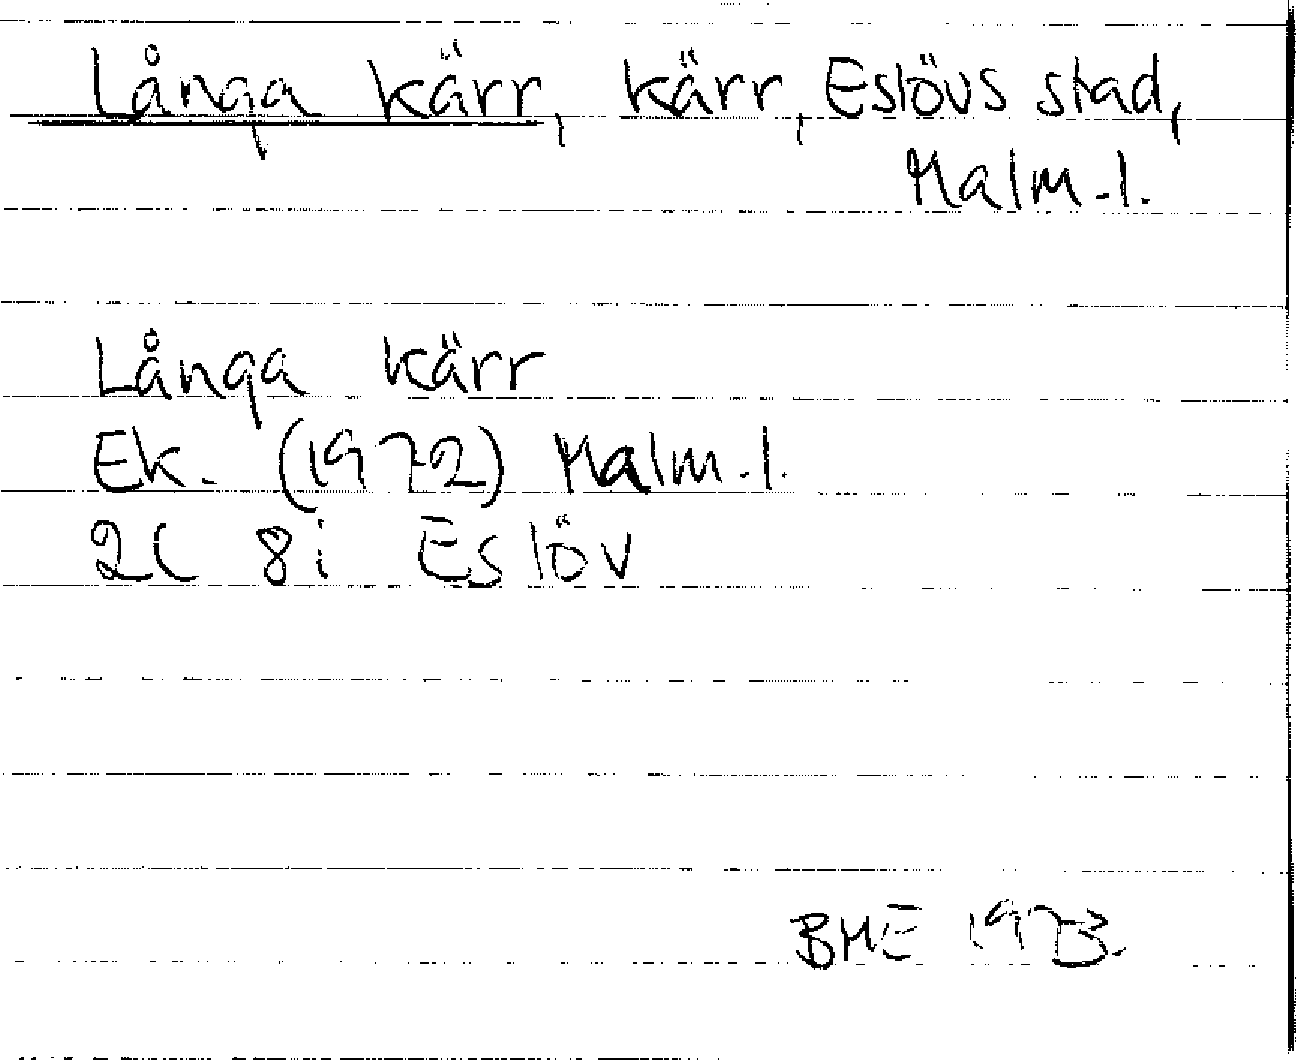 Långa kärr, kärr, Eslövs stad,
Malm.l.
Långa kärr
Ek. (1972) Malm.l.
2C 8i Eslöv
BME 1973.